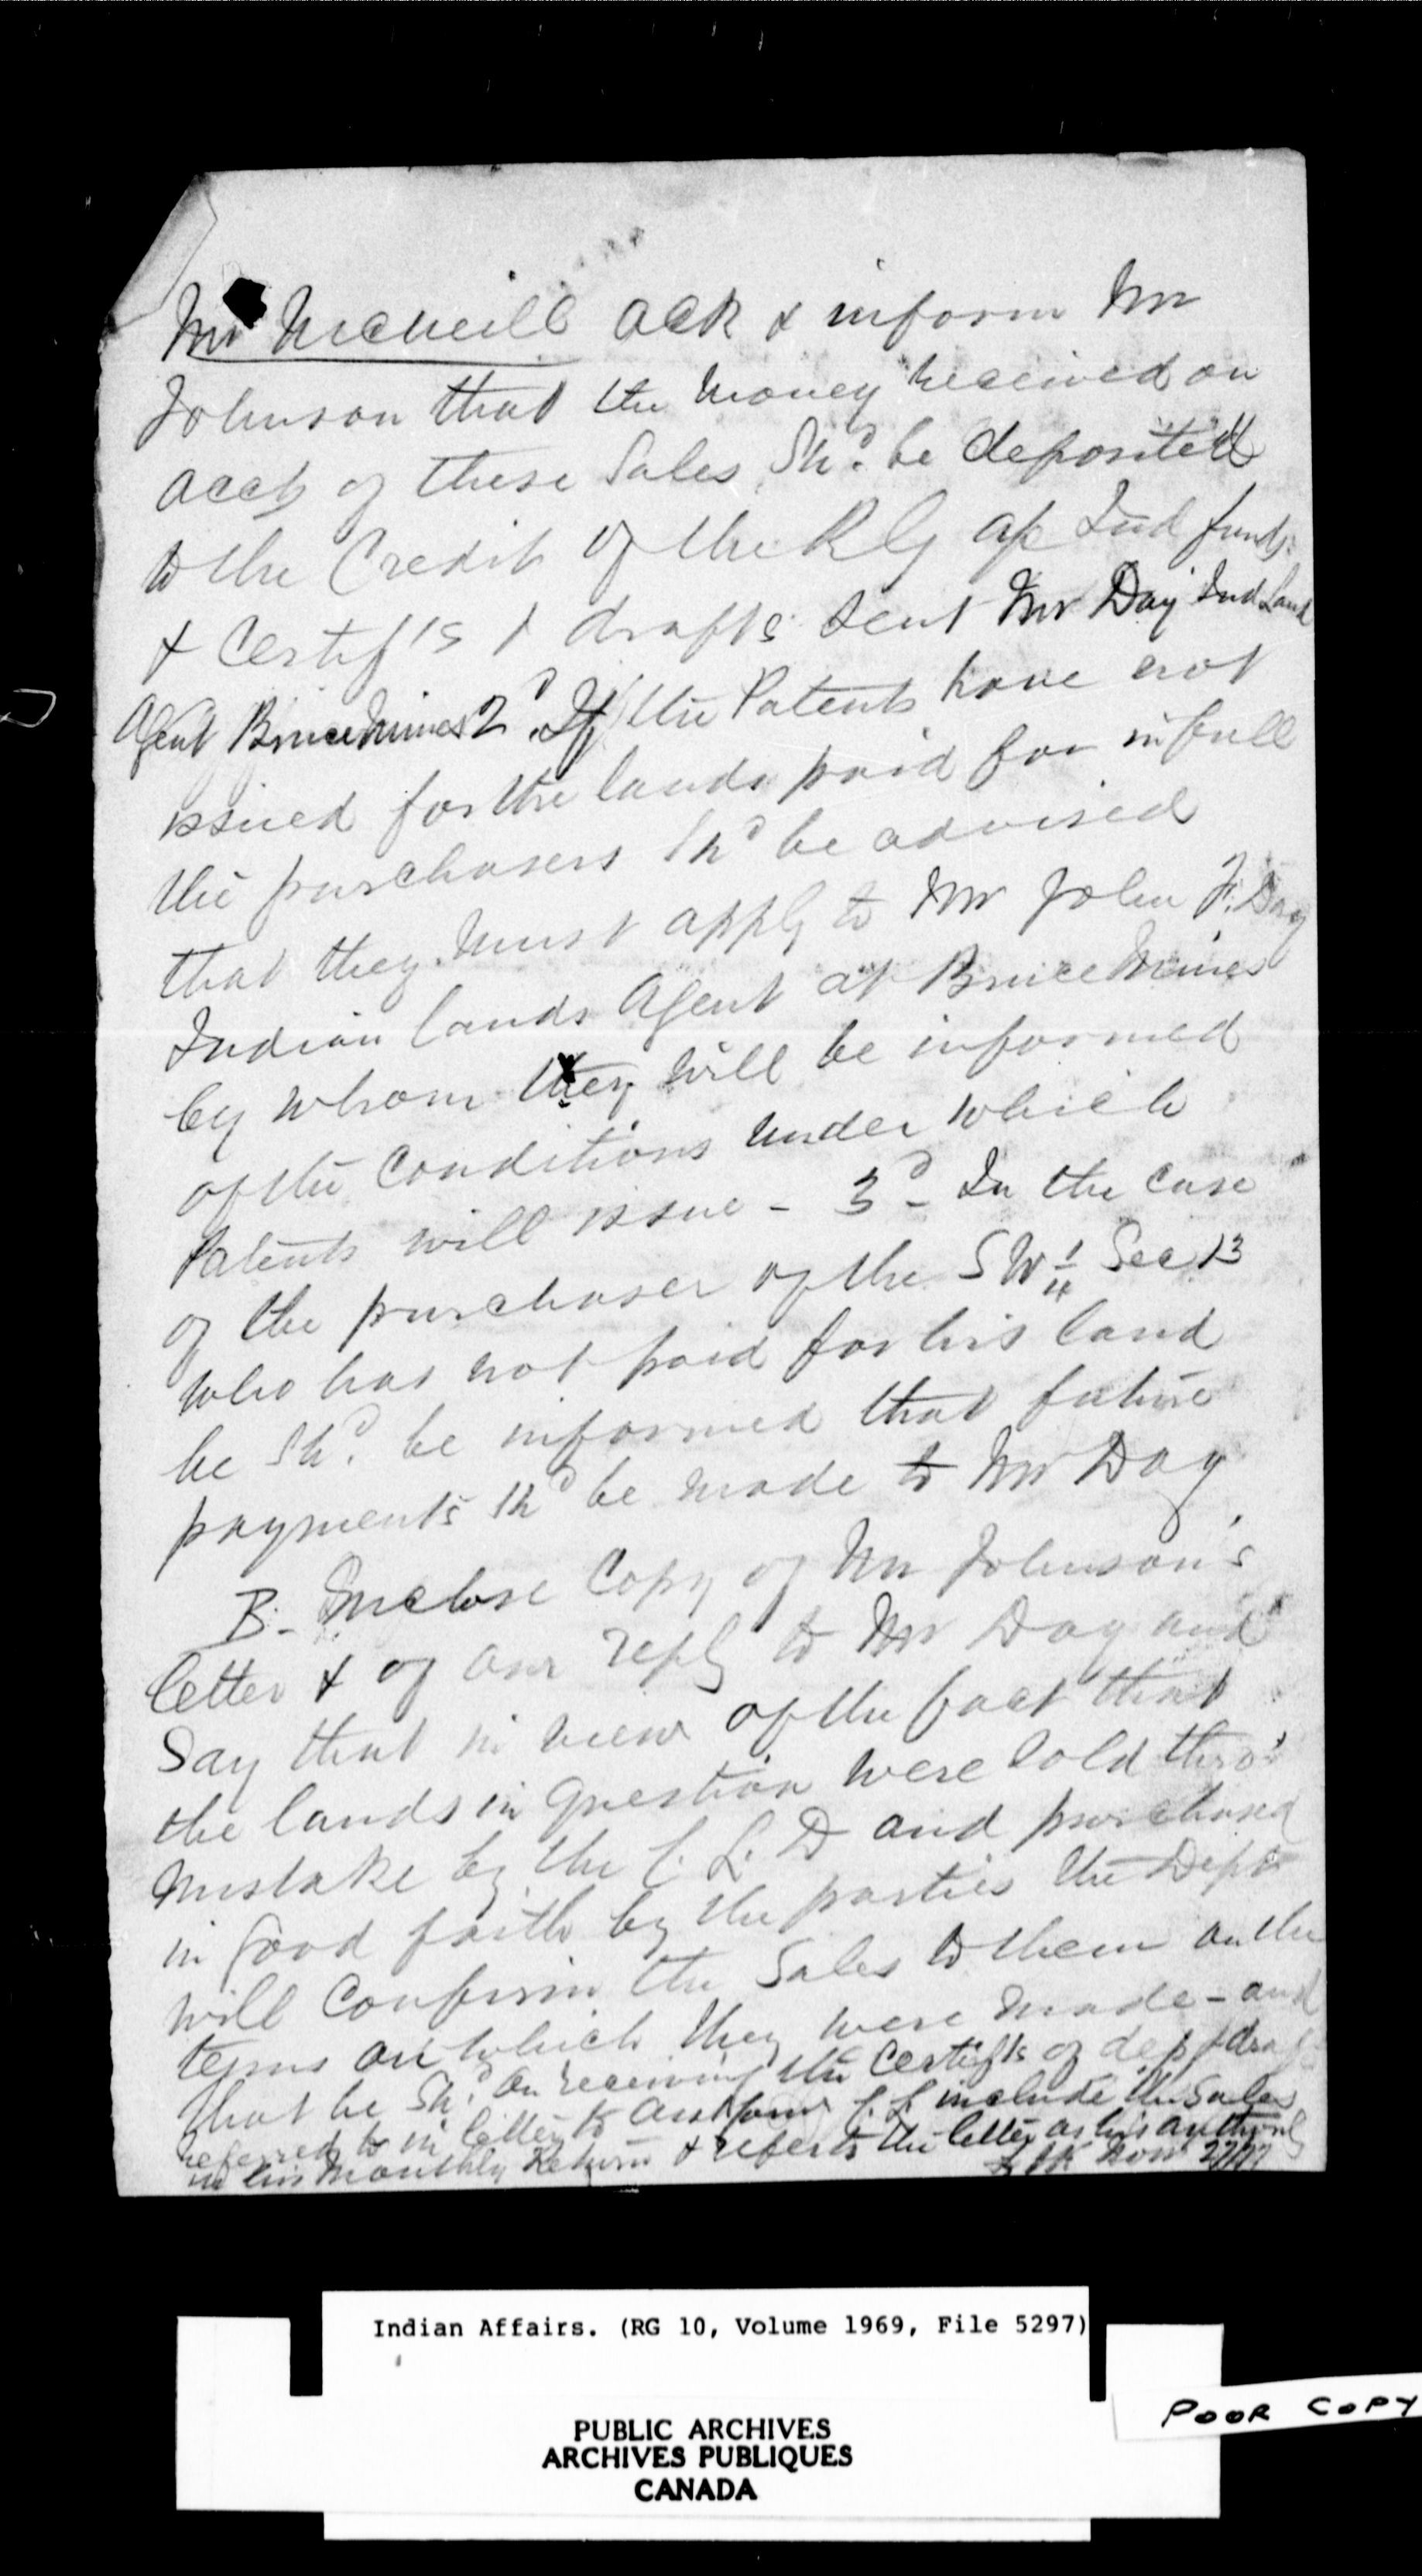 Mr McNeill ack & inform Mr
Johnson that the money received on
acct of these Sales Shd. be deposited
to the Credit of the R G a/c Ind funds
& Certif's & drafts sent Mr Day Ind Land
Agent Bruce Mines 2d. If the Patents have not
issued for the lands paid for in full
the purchasers shd be advised
that they must apply to Mr John F. Day
Indian lands Agent at Bruce Mines
by whom they will be informed
of the Conditions under which
Patents will issue - 3d - In the case
of the purchaser of the SW 1/4 Sec 13
who has not paid for his land
he Shd. be informed that future
payments shd be made to Mr Day
B - Inclose Copy of Mr Johnson's
letter & of our reply to Mr Day and
Say that in view of the fact that
the lands in question were sold thro'
mistake by the C. L. D and purchased
in good faith by the parties the Dept
will Confirm the Sales to them on the
terms on which they were made - and
that he Shd. on receiving the Certifts of dep &
referred to in letter to C. L include the Sales
in his monthly Return & refer to the letter as his authority
Nov 27/77
Indian Affairs. (RG 10, Volume 1969, File 5297)
POOR COPY
PUBLIC ARCHIVES
ARCHIVES PUBLIQUES
CANADA